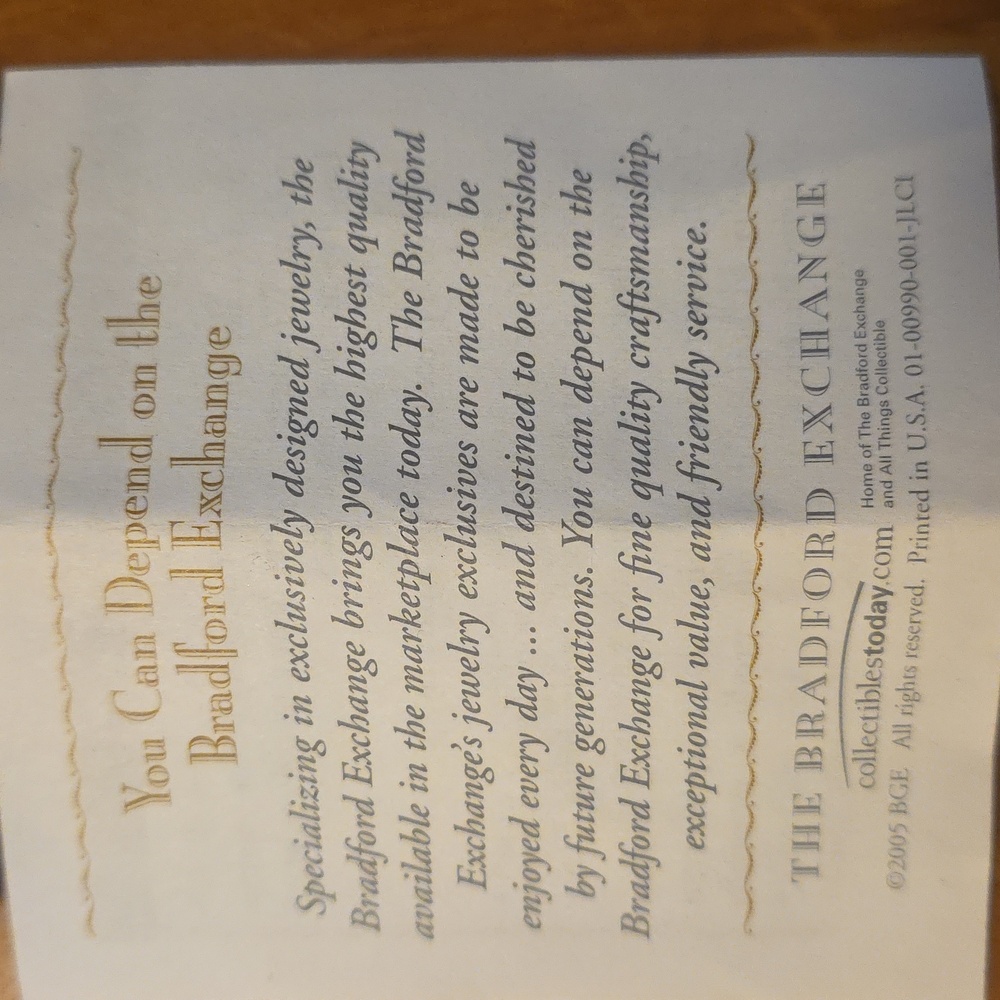 You Can Depend on the
Bradford Exchange
Specializing in exclusively designed jewelry, the
Bradford Exchange brings you the highest quality
available in the marketplace today. The Bradford
Exchange's jewelry exclusives are made to be
enjoyed every day ... and destined to be cherished
by future generations. You can depend on the
Bradford Exchange for fine quality craftsmanship,
exceptional value, and friendly service.
THE BRADFORD EXCHANGE
collectiblestoday.com Home of The Bradford Exchange
and All Things Collectible
©2005 BGE All rights reserved. Printed in U.S.A. 01-00990-001-JLCI